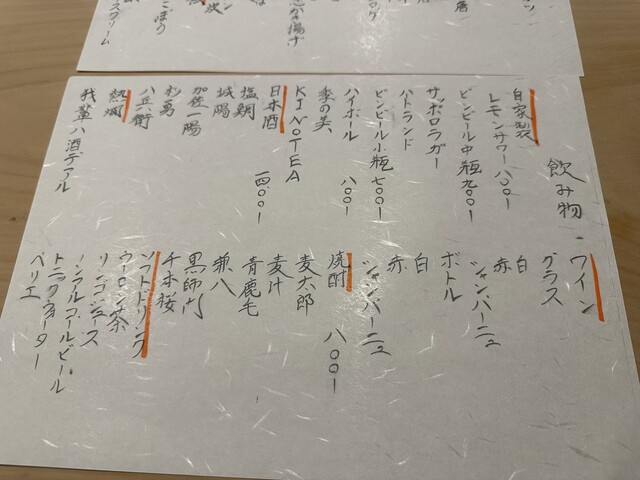 飲み物
自家製
レモンサワー 八〇〇ー
ビンビール中瓶 九〇〇ー
サッポロラガー
ハートランド
ビンビール小瓶 七〇〇ー
ハイボール 八〇〇ー
季の美
KINOTEA 一四〇〇ー
日本酒
塩鯛
城陽
加佐一陽
杉勇
八兵衛
熱燗
我輩ハ酒デアル
ワイン
グラス
白
赤
シャンパーニュ
ボトル
白
赤
シャンパーニュ
焼酎 八〇〇ー
麦太郎
麦汁
青鹿毛
兼八
黒師門
千本桜
ソフトドリンク
ウーロン茶
リンゴジュース
ノンアルコールビール
トニックウォーター
ペリエ